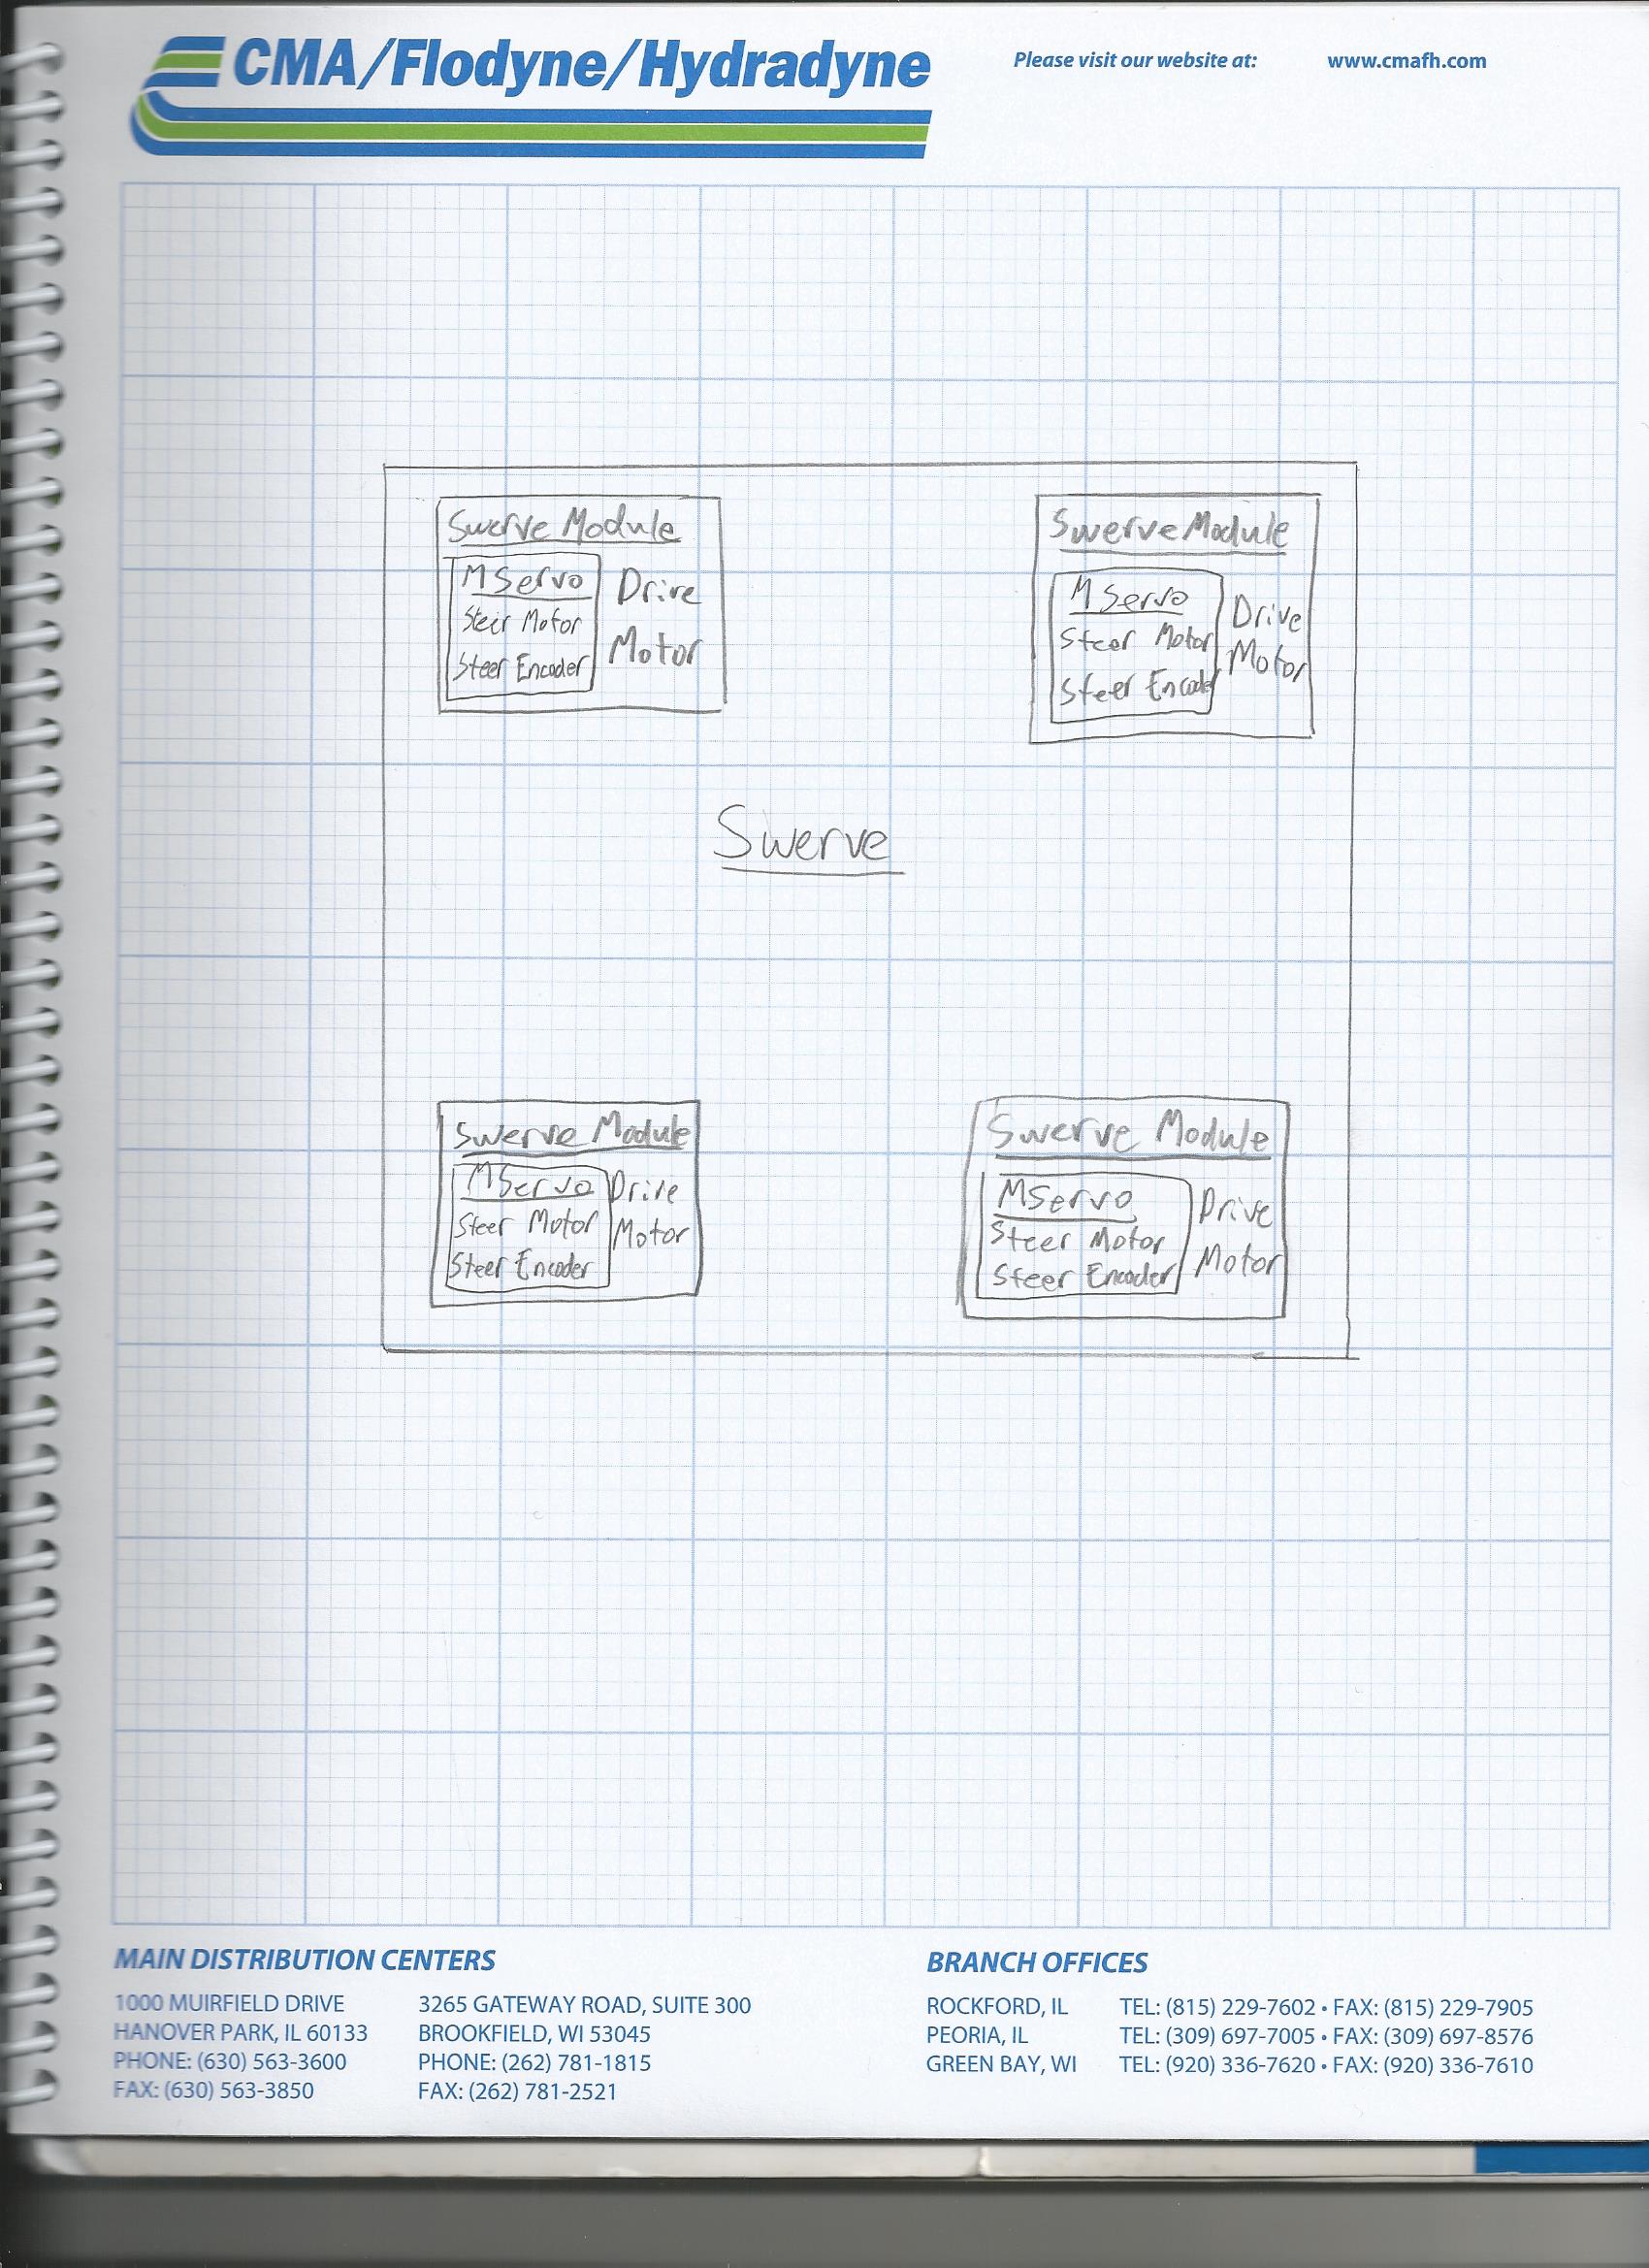 CMA/Flodyne/Hydradyne
Please visit our website at: www.cmafh.com
Swerve Module
MServo
Steer Motor
Steer Encoder
Drive
Motor
Swerve Module
MServo
Steer Motor
Steer Encoder
Drive
Motor
Swerve
Swerve Module
MServo
Steer Motor
Steer Encoder
Drive
Motor
Swerve Module
MServo
Steer Motor
Steer Encoder
Drive
Motor
MAIN DISTRIBUTION CENTERS
1000 MUIRFIELD DRIVE
HANOVER PARK, IL 60133
PHONE: (630) 563-3600
FAX: (630) 563-3850
3265 GATEWAY ROAD, SUITE 300
BROOKFIELD, WI 53045
PHONE: (262) 781-1815
FAX: (262) 781-2521
BRANCH OFFICES
ROCKFORD, IL TEL: (815) 229-7602 • FAX: (815) 229-7905
PEORIA, IL TEL: (309) 697-7005 • FAX: (309) 697-8576
GREEN BAY, WI TEL: (920) 336-7620 • FAX: (920) 336-7610